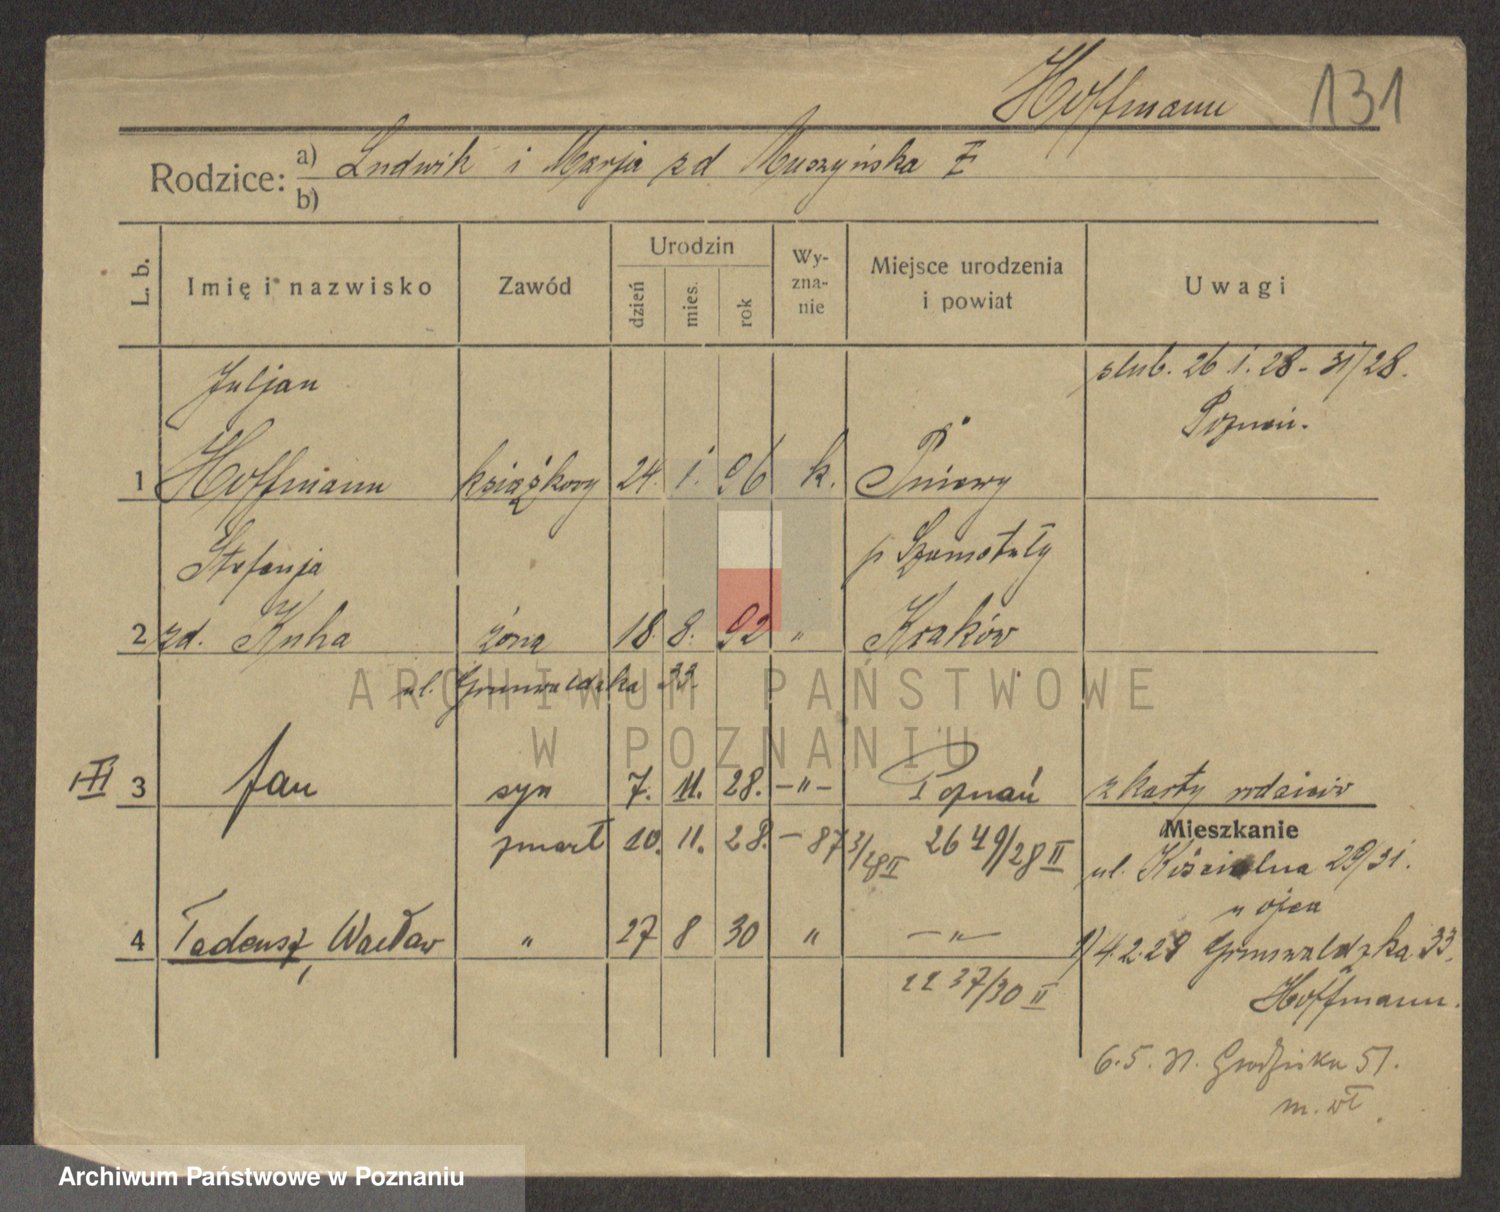 Hoffmann 131
Rodzice: a) Ludwik i Marja zd Muszyńska
b)
L. b. Imię i nazwisko Zawód Urodzin dzień mies. rok Wy-zna-nie Miejsce urodzenia i powiat Uwagi
Juljan ślub. 26 1. 28 - 31/28.
Poznań.
1 Hoffmann książkowy 24. 1. 96 k. Pniewy
Stefanja p Szamotuły
2 zd. Kuha żona 18. 8. 92 " Kraków
ul. Grunwaldzka 33.
ARCHIWUM PAŃSTWOWE
W POZNANIU
3 Jan syn 7. 11. 28. -"- Poznań z karty rodziców
Mieszkanie
zmarł 10. 11. 28. - 873/28 II 2649/28 II
ul. Kościelna 29/31.
u ojca
4 Tadeusz, Wacław " 27 8 30 " -"- 1) 4.2.29 Grunwaldzka 33.
2237/30 II Hoffmann.
6.5.31. Grodziska 51.
m. wł.
Archiwum Państwowe w Poznaniu